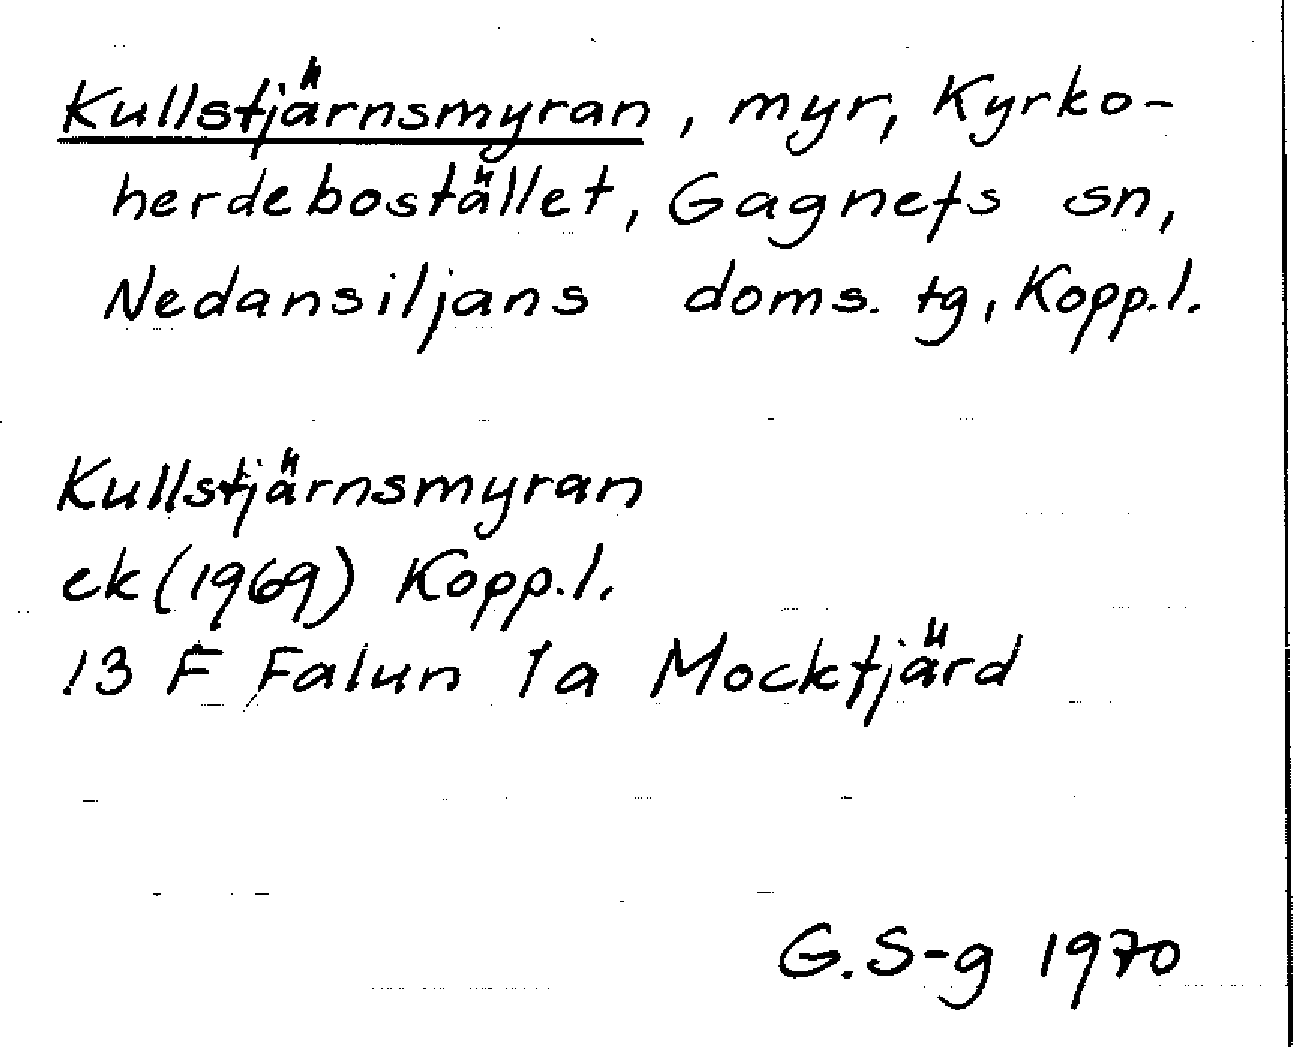 Kullstjärnsmyran, myr, Kyrko-
herdebostället, Gagnefs sn,
Nedansiljans doms. tg, Kopp.l.
Kullstjärnsmyran
ek (1969) Kopp.l.
13 F Falun 1a Mocktjärd
G. S-g 1970